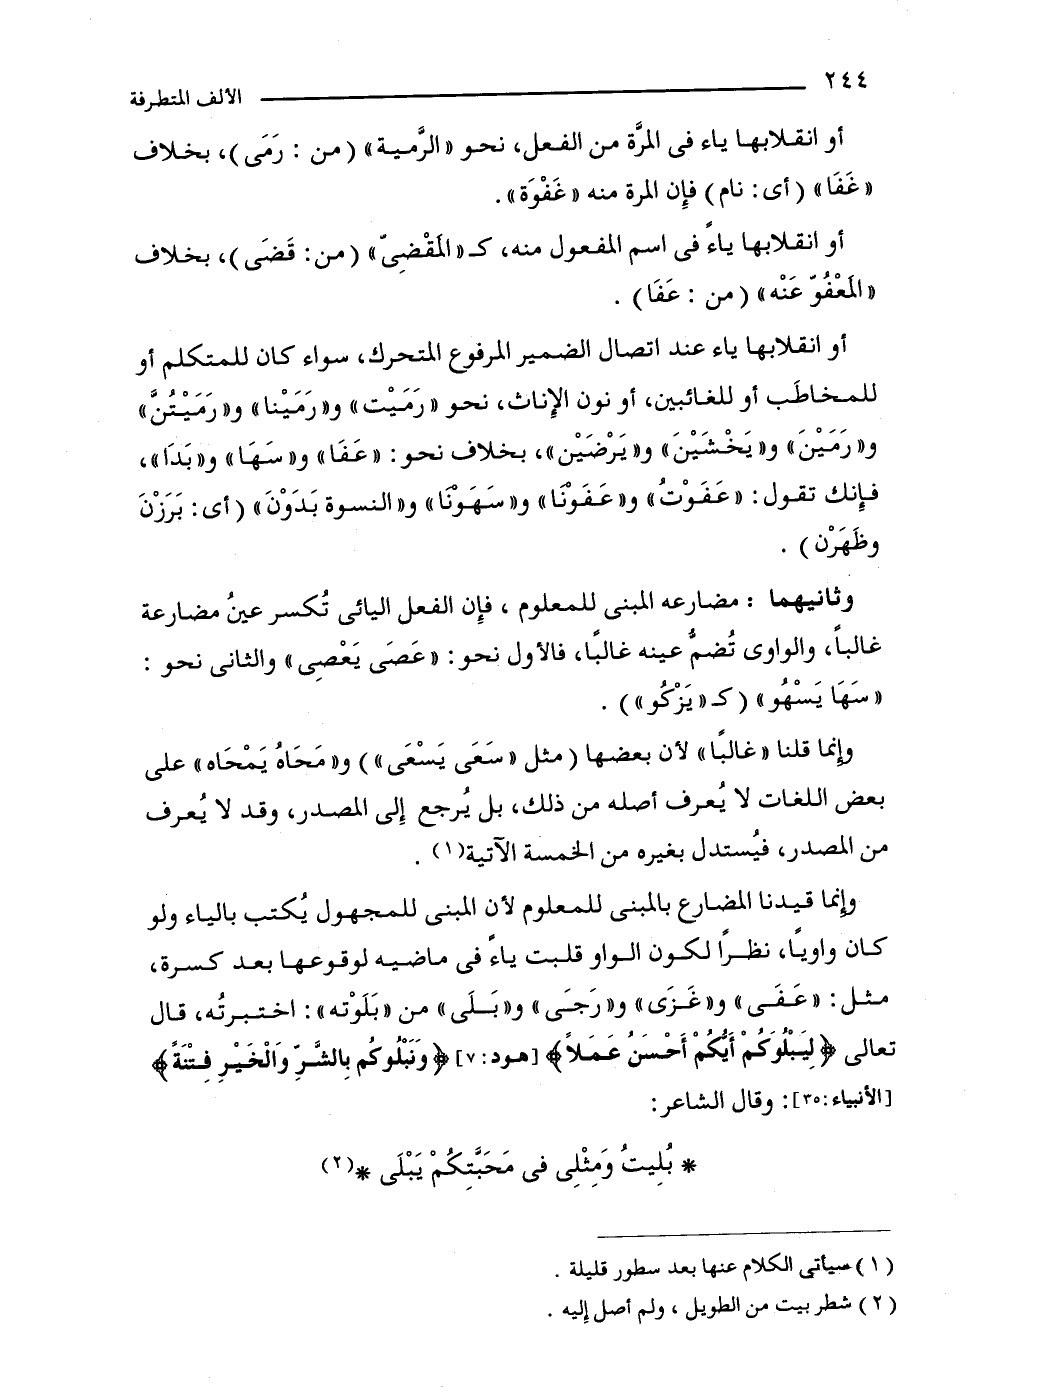 ٢٤٤
الألف المتطرفة
أو انقلابها ياء فى المرَّة من الفعل، نحو «الرَّمية» (من : رَمَى)، بخلاف
«غَفَا» (أى: نام) فإن المرة منه «غَفْوَة».
أو انقلابها ياءً فى اسم المفعول منه، كـ «المَقْضِىّ» (من: قَضَى)، بخلاف
«المَعْفُوّ عَنْه» (من : عَفَا) .
أو انقلابها ياء عند اتصال الضمير المرفوع المتحرك، سواء كان للمتكلم أو
للمخاطَب أو للغائبين، أو نون الإناث، نحو «رَمَيْت» و«رَمَيْنا» و«رَمَيْتُنَّ»
و«رَمَيْنَ» و«يَخْشَيْنَ» و«يَرْضَيْن»، بخلاف نحو: «عَفَا» و«سَهَا» و«بَدَا»،
فإنك تقول: «عَفَوْتُ» و«عَفَوْنَا» و«سَهَوْنَا» و«النسوة بَدَوْنَ» (أى: بَرَزْنَ
وظَهَرْن) .
وثانيهما : مضارعه المبنى للمعلوم ، فإن الفعل اليائى تُكسر عينُ مضارعة
غالباً، والواوى تُضمُّ عينه غالبًا، فالأول نحو: «عَصَى يَعْصِى» والثانى نحو :
«سَهَا يَسْهُو» (كـ «يَزْكُو») .
وإنما قلنا «غالبًا» لأن بعضها (مثل «سَعَى يَسْعَى») و«مَحَاهُ يَمْحَاه» على
بعض اللغات لا يُعرف أصله من ذلك، بل يُرجع إلى المصدر، وقد لا يُعرف
من المصدر، فيُستدل بغيره من الخمسة الآتية(١) .
وإنما قيدنا المضارع بالمبنى للمعلوم لأن المبنى للمجهول يُكتب بالياء ولو
كان واويًا، نظرًا لكون الواو قلبت ياءً فى ماضيه لوقوعها بعد كسرة،
مثل: «عَفَى» و«غَزَى» و«رَجَى» و«بَلَى» من «بَلَوْته»: اختبرتُه، قال
تعالى ﴿لِيَبْلُوَكُمْ أَيُّكُمْ أَحْسَنُ عَمَلاً﴾ [هود: ٧] ﴿وَنَبْلُوكُم بِالشَّرِّ وَالْخَيْرِ فِتْنَةً﴾
[الأنبياء:٣٥]: وقال الشاعر:
* بُلِيتُ وَمِثْلِى فى مَحَبَّتِكُمْ يَبْلَى *(٢)
(١) سيأتى الكلام عنها بعد سطور قليلة .
(٢) شطر بيت من الطويل ، ولم أصل إليه .